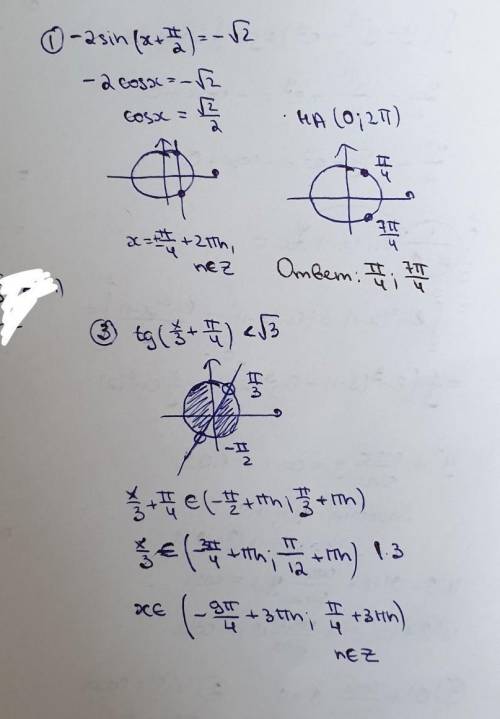 ① -2sin(x+π/2)=-√2
-2cosx=-√2
cosx=√2/2
· НА (0;2π)
π/4
7π/4
x=±π/4+2πn,
n∈Z
Ответ: π/4; 7π/4
③ tg(x/3+π/4)<√3
π/3
-π/2
x/3+π/4∈(-π/2+πn;π/3+πn)
x/3∈(-3π/4+πn;π/12+πn) |·3
x∈(-9π/4+3πn; π/4+3πn)
n∈Z